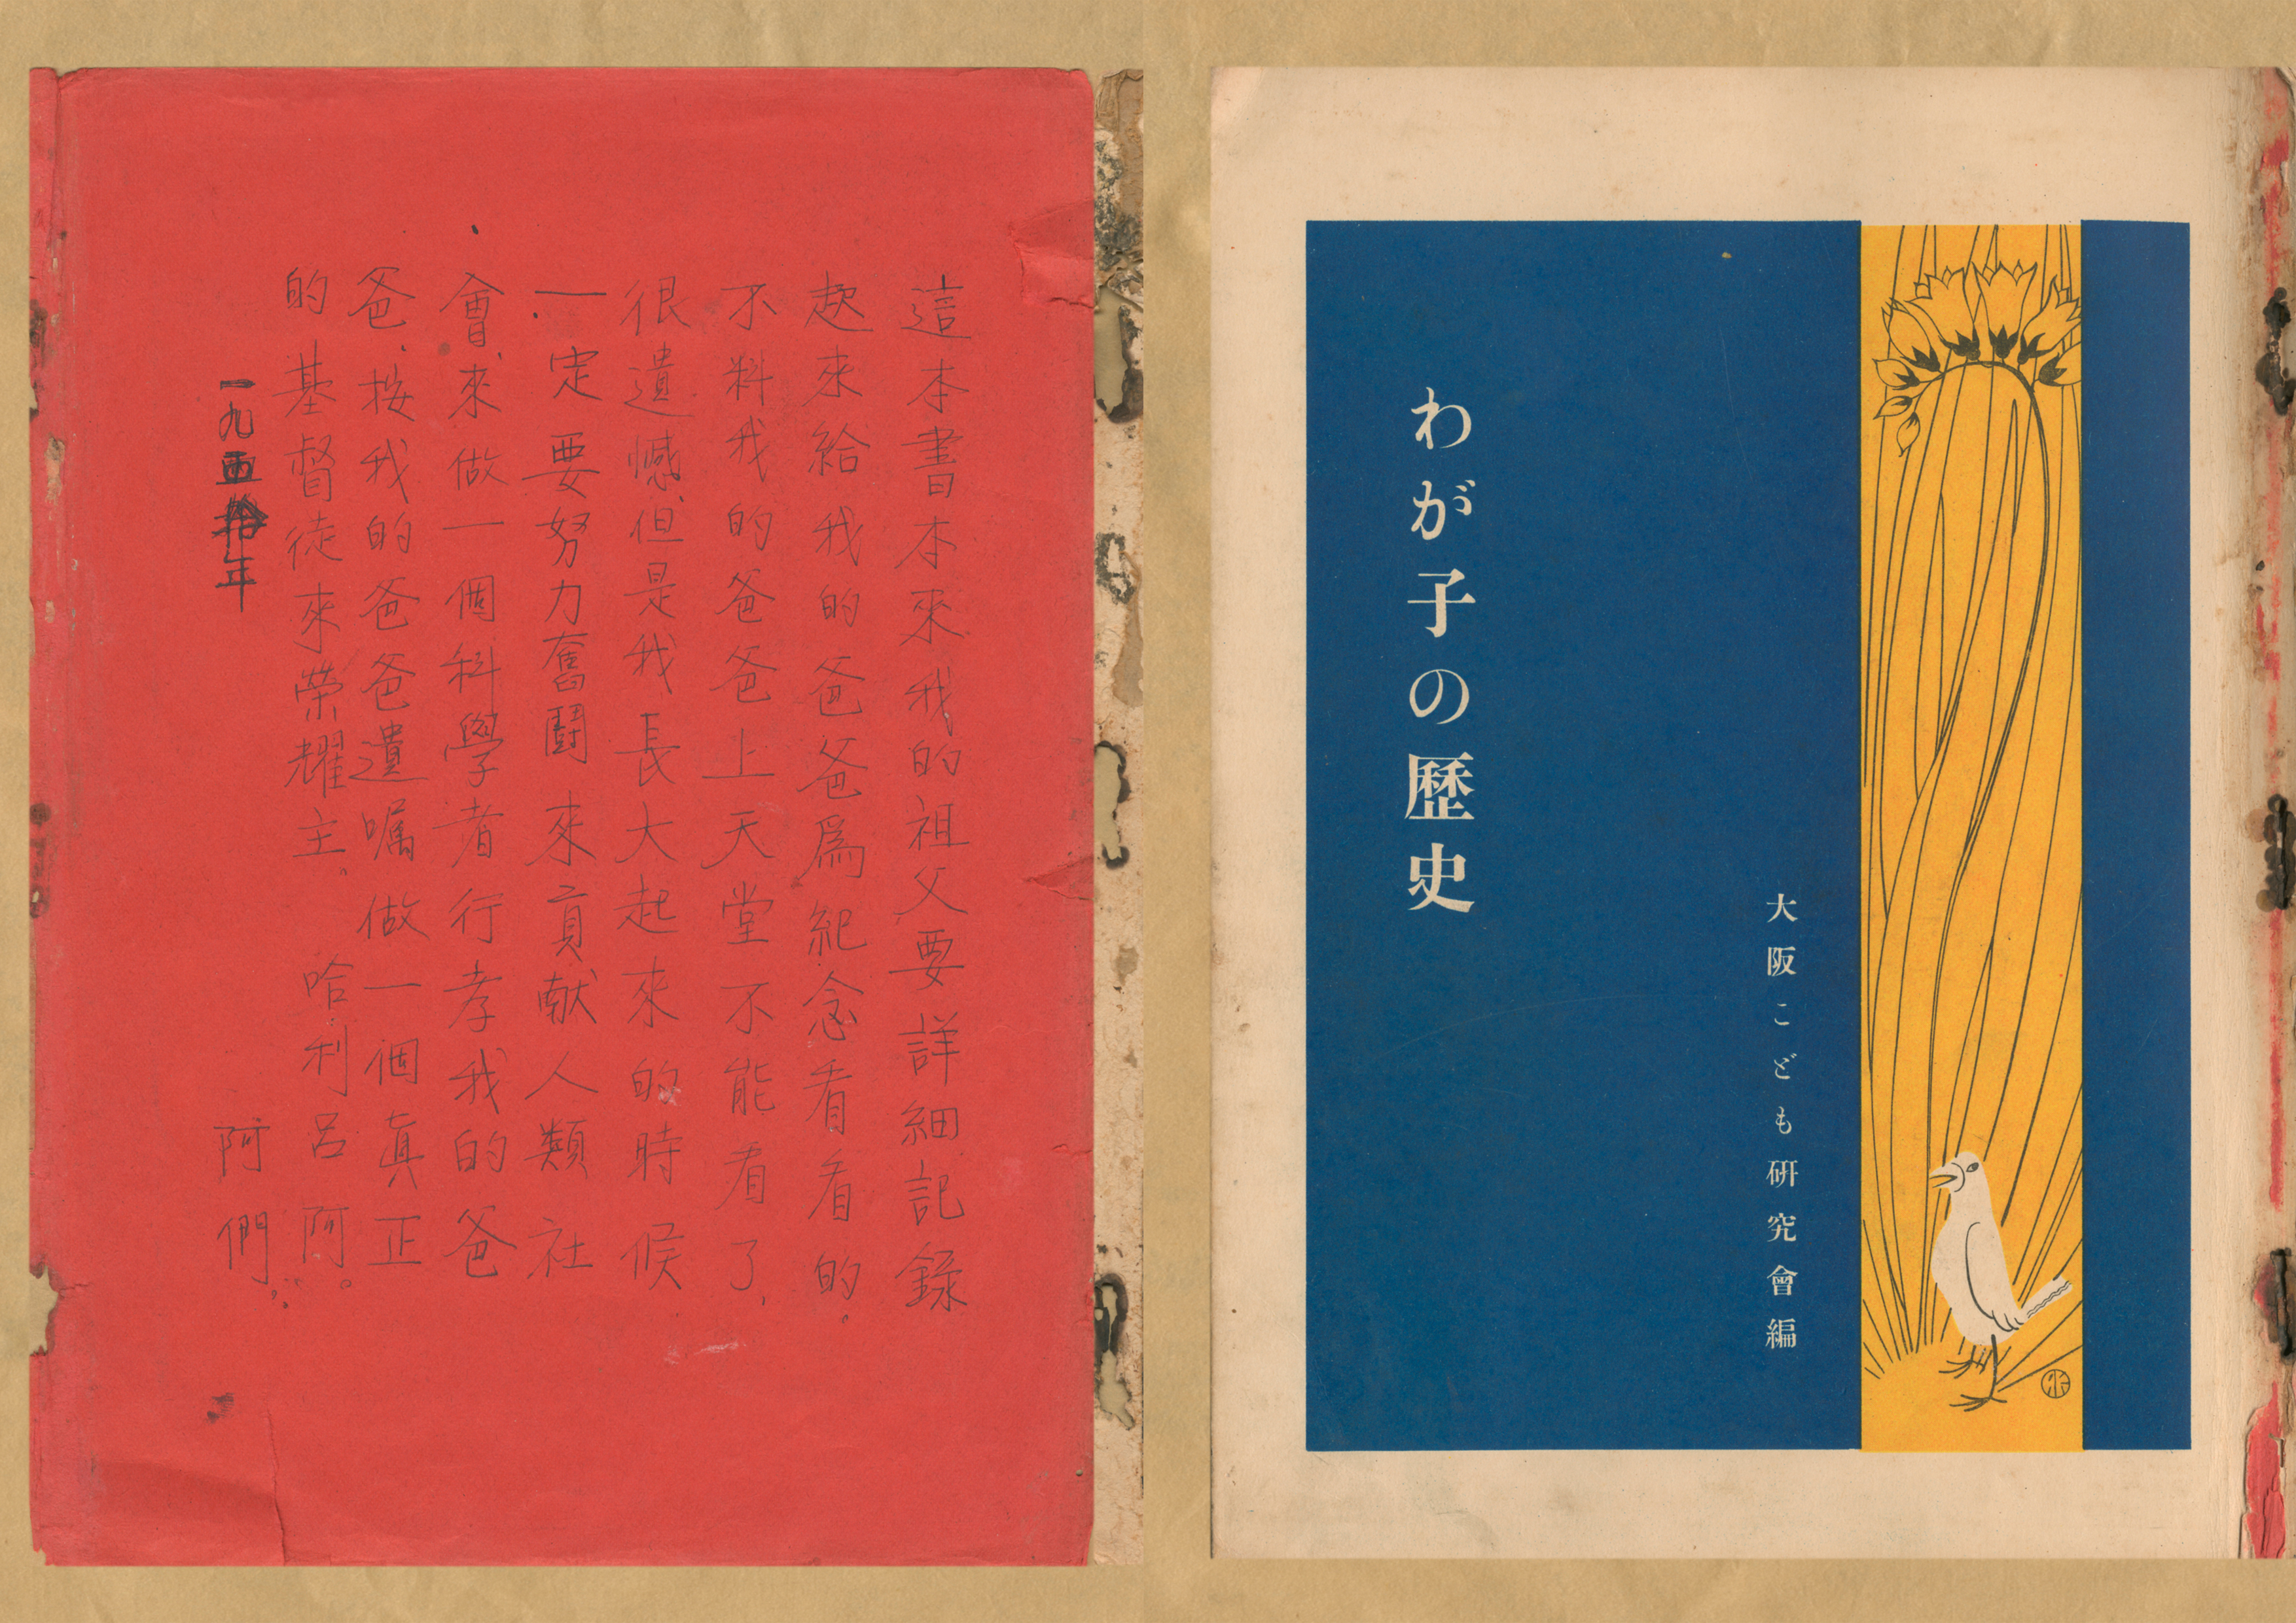 這本書本來我的祖父要詳細記錄
起來給我的爸爸為紀念看看的。
不料我的爸爸上天堂不能看了,
很遺憾,但是我長大起來的時候
一定要努力奮鬪來貢献人類社
會,來做一個科學者行孝我的爸
爸,按我的爸爸遺嘱做一個眞正
的基督徒來榮耀主。 哈利呂阿。
阿們。
一九五 年
わが子の歷史
大阪こども硏究會編